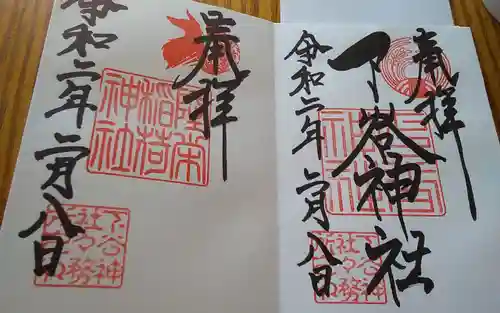 奉拝
下谷神社
令和二年二月八日
下谷神
社々務
所印
奉拝
隆栄
稲荷
神社
令和二年二月八日
下谷神
社々務
所印